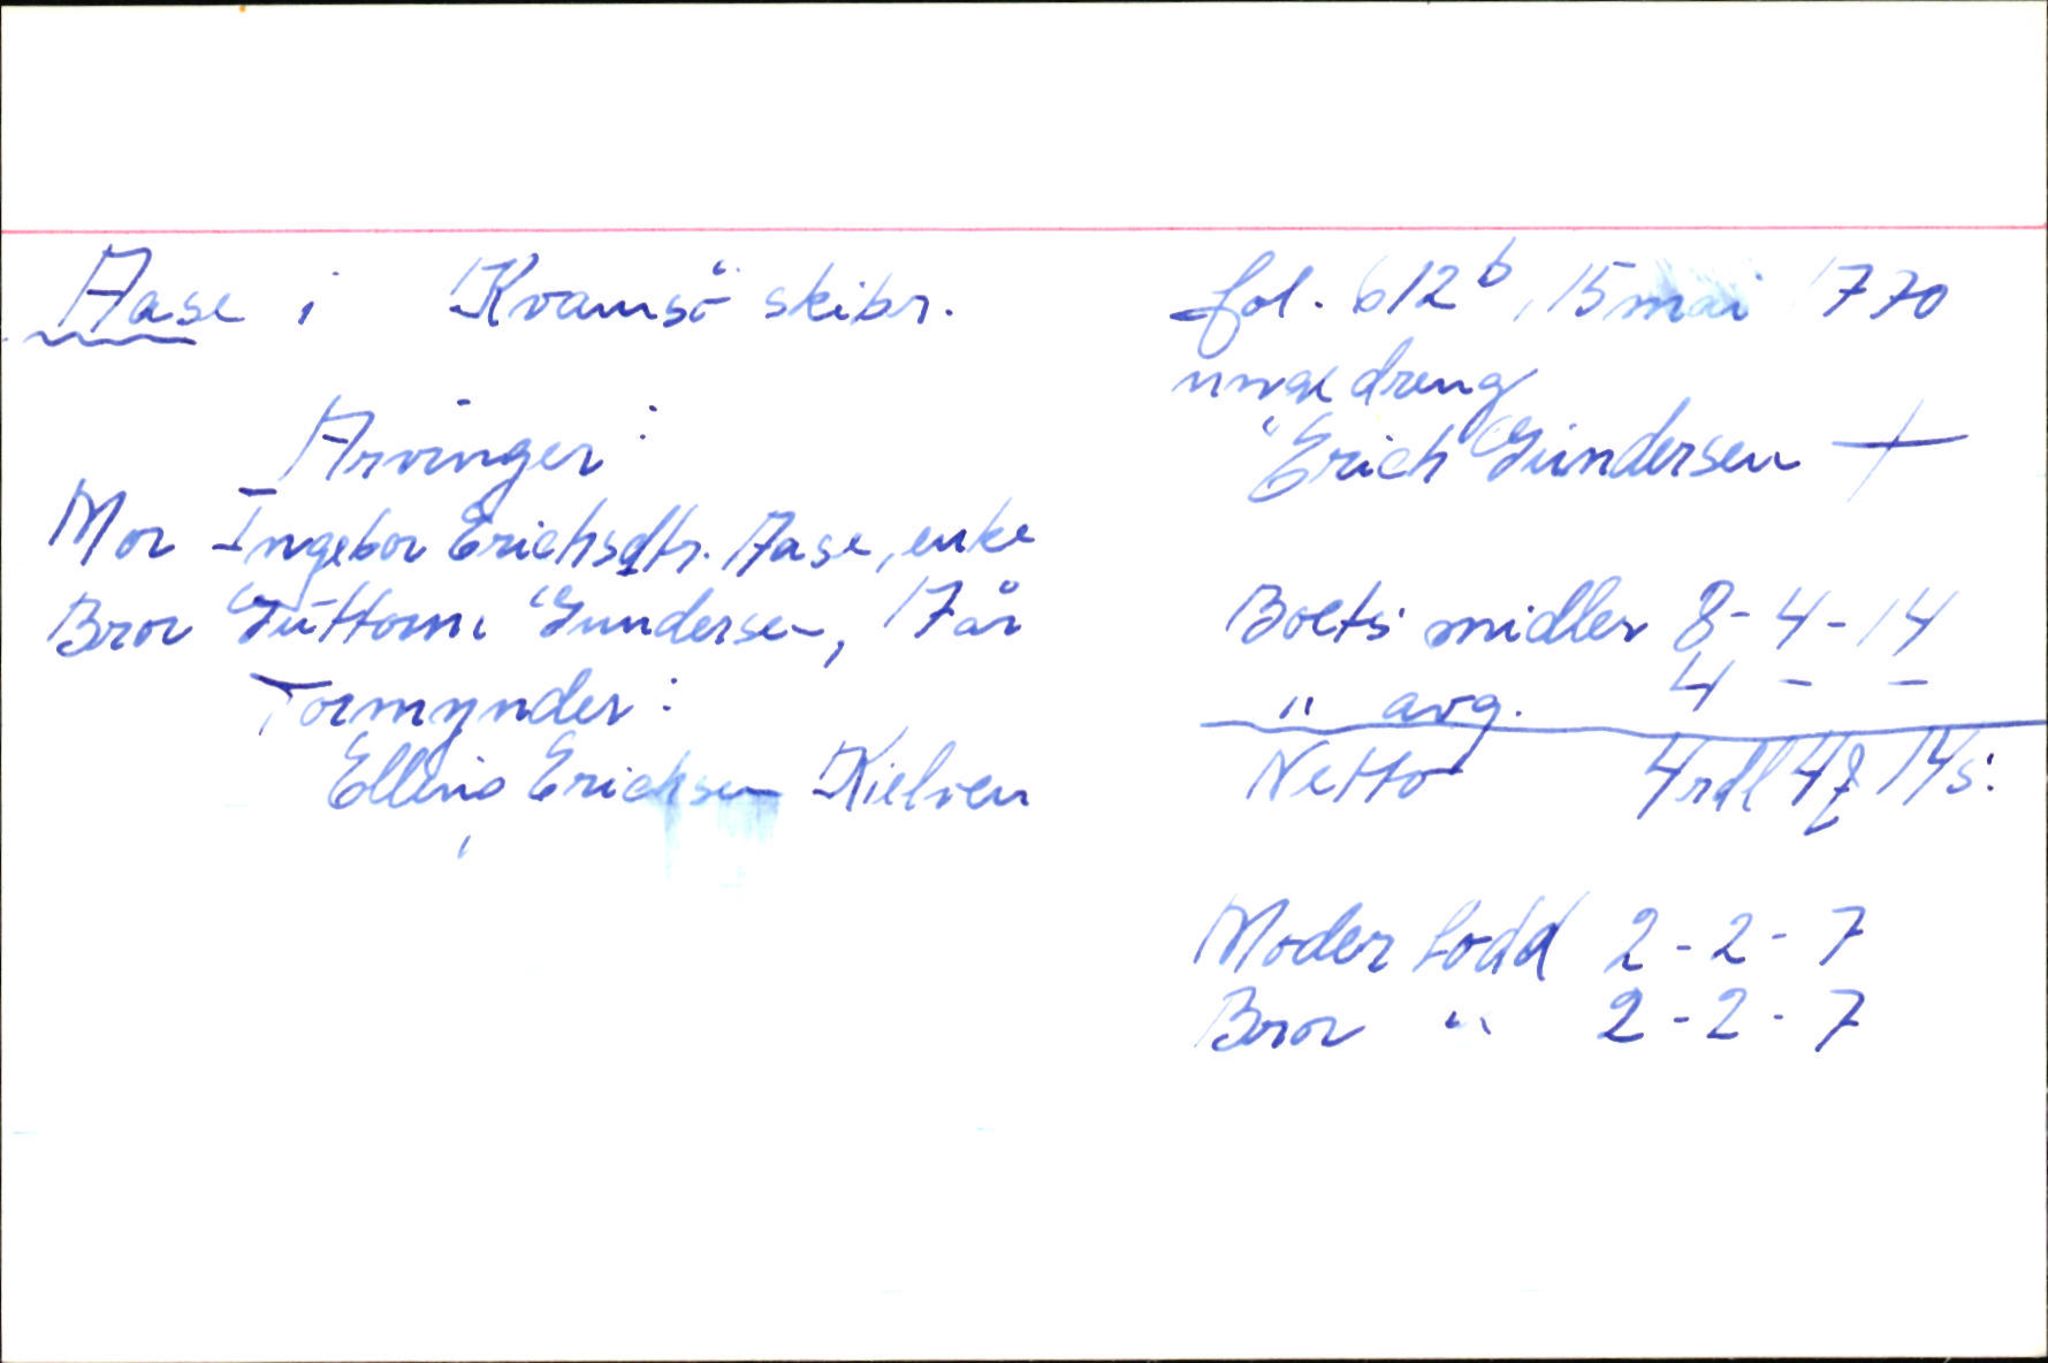 Aase i Kvamsö skibr.
fol. 612b, 15 mai 1770
unge dreng
Erich Gundersen +
Arvinger:
Mor Ingebor Erichsdtr. Aase, enke
Bror Guttorm Gundersen, 17 år
Formynder:
Elling Erichsen Kielven
Boets midler 8 - 4 - 14
" avg. 4 - -
Netto 4 rdl 4 14 s:
Moder Lodd 2 - 2 - 7
Bror " 2 - 2 - 7